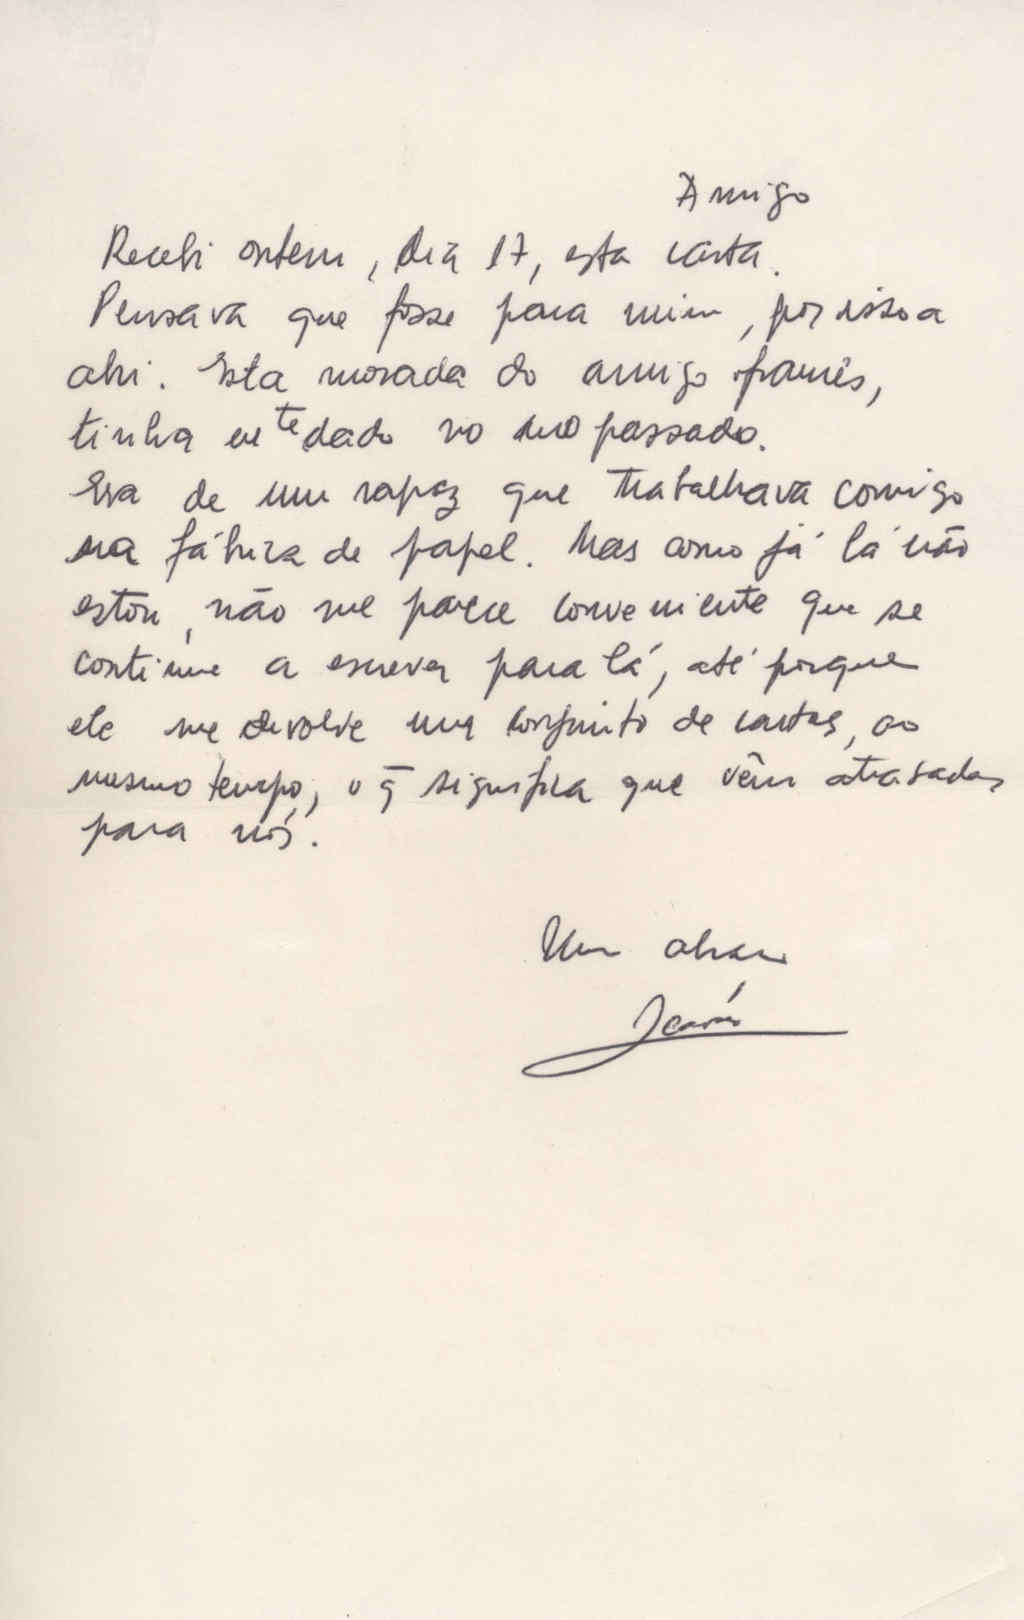 Amigo
Recebi ontem, dia 17, esta carta.
Pensava que fosse para mim, por isso a
abri. Esta morada do amigo francês,
tinha eu te dado no ano passado.
Era de um rapaz que trabalhava comigo
na fábrica de papel. Mas como já lá não
estou, não me parece conveniente que se
continue a escrever para lá, até porque
ele me devolve um conjunto de cartas, ao
mesmo tempo, o q̄ significa que vêm atrasadas
para nós.
Um abraço